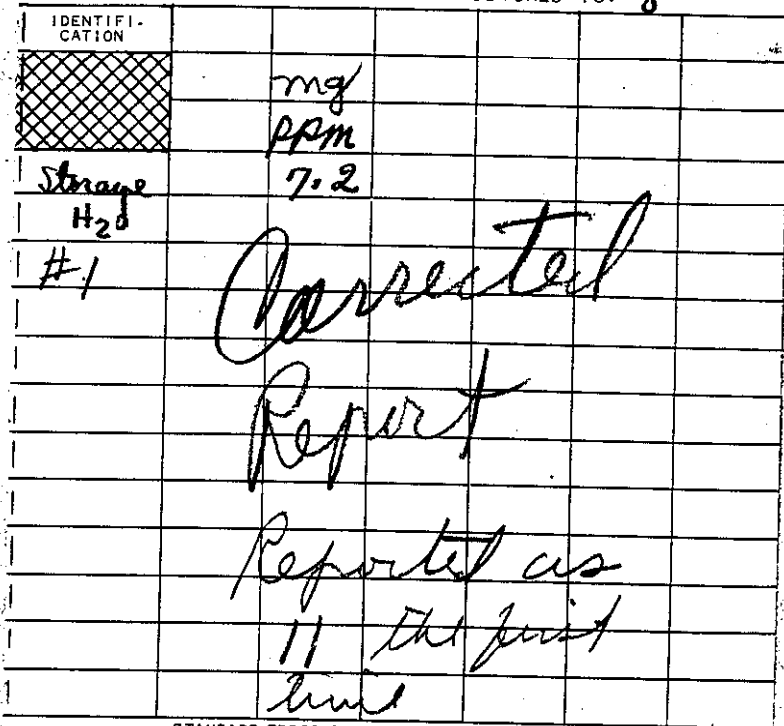 IDENTIFI-
CATION
mg
PPM
Storage 7.2
H2O
#1
Corrected
Report
Reported as
11 the first
time